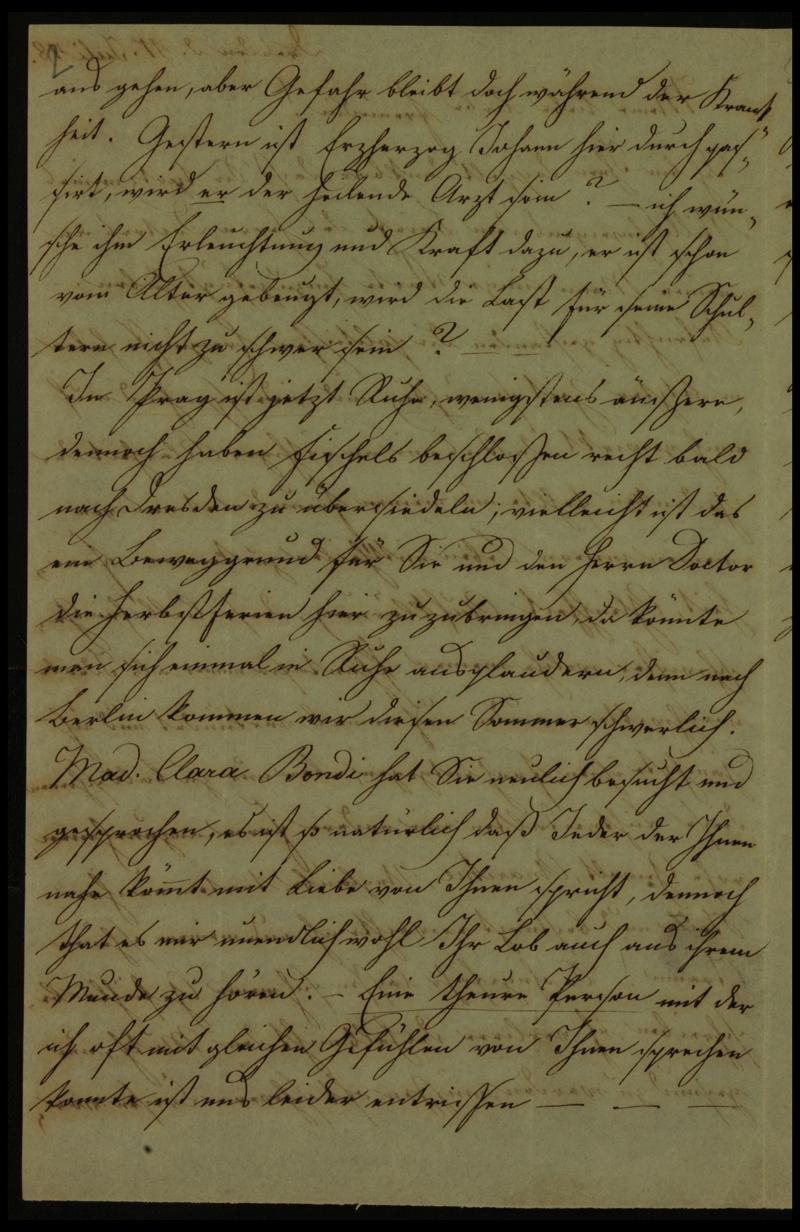 2
aus gehen, aber Gefahr bleibt doch während der Krank
heit. Gestern ist Erzherzog Johann hier durch pas„
sirt, wird er der heilende Arzt sein? — ich wün„
sche ihm Erleuchtung und Kraft dazu, er ist schon
vom Alter gebeugt, wird die Last für seine Schul„
tern nicht zu schwer sein? — —
In Prag ist jetzt Ruhe, wenigstens äußere,
dennoch haben Fischels beschloßen recht bald
nach Dresden zu übersiedeln; vielleicht ist das
ein Beweggrund für Sie und den Herrn Doctor
die Herbstferien hier zuzubringen, da könnte
man sich einmal in Ruhe ausplaudern, denn nach
Berlin kommen wir diesen Sommer schwerlich.
Mad. Clara Bondi hat Sie neulich besucht und
gesprochen, es ist so natürlich daß Jeder der Ihnen
nahe kömt mit Liebe von Ihnen spricht, dennoch
that es mir unendlich wohl Ihr Lob auch aus ihrem
Munde zu hören. — Eine theure Person mit der
ich oft mit gleichen Gefühlen von Ihnen sprechen
konnte ist uns leider entrissen — — —